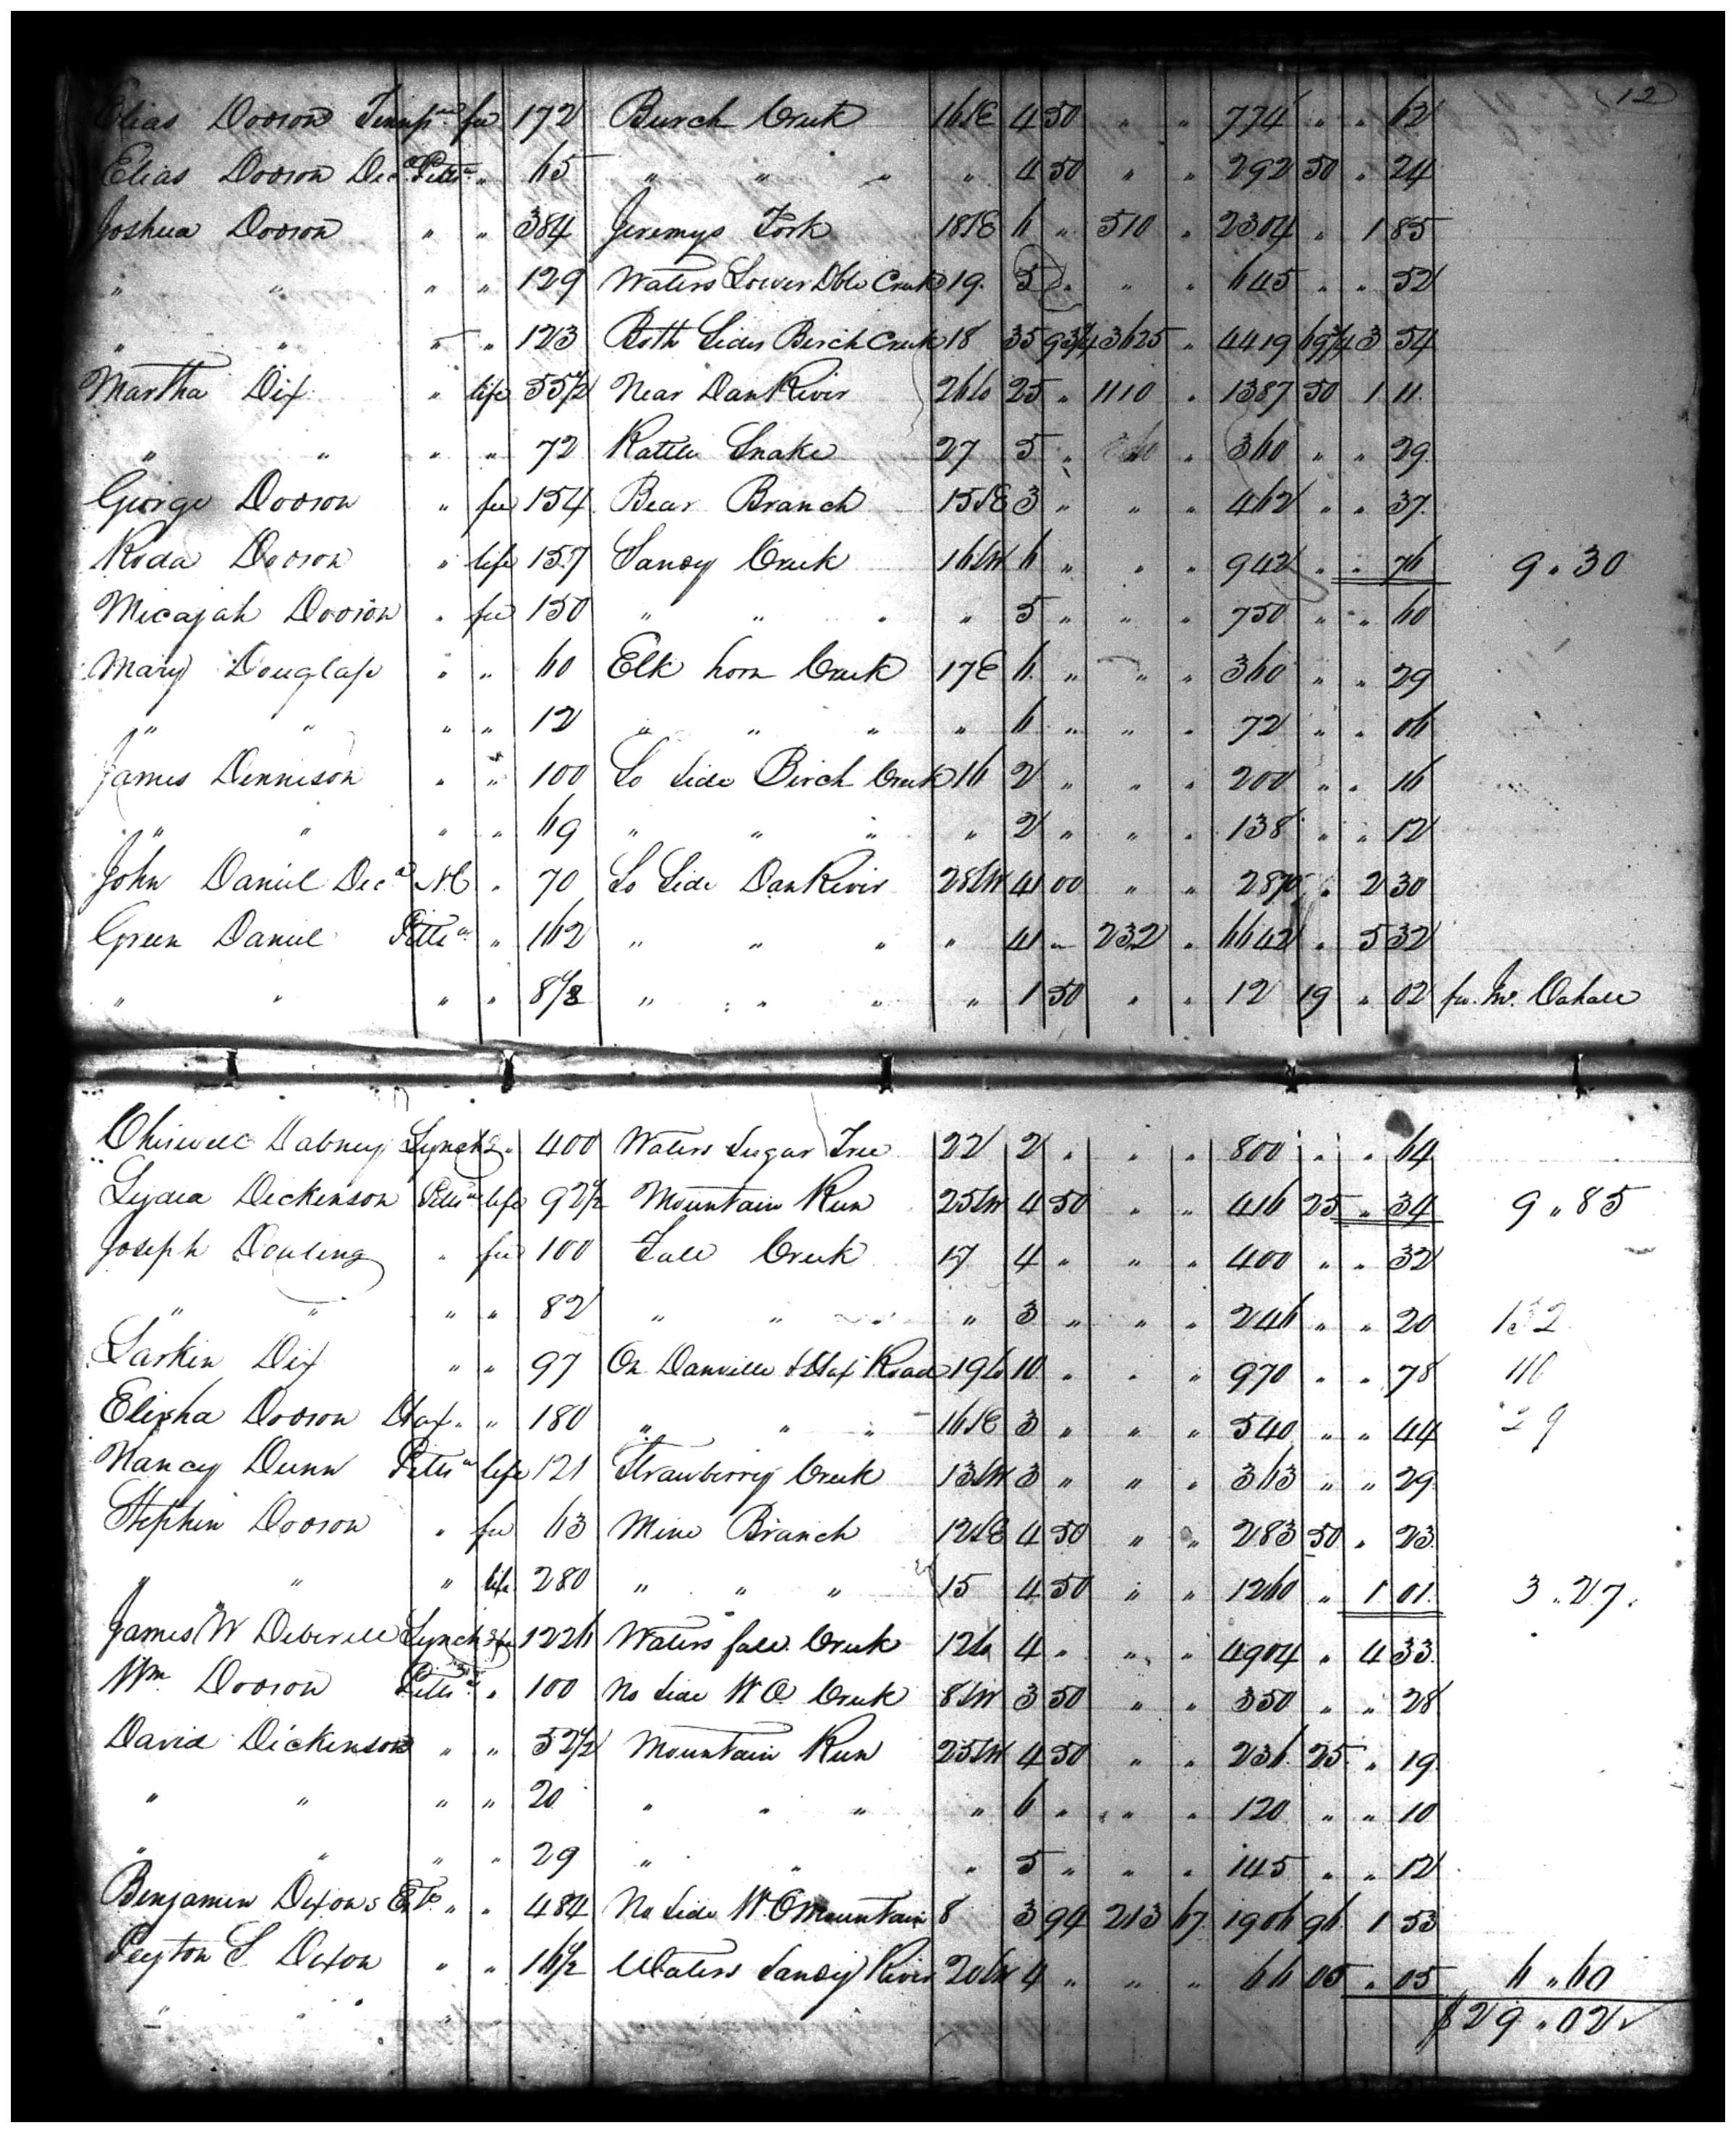 (12)
Elias Dodson Tennes fee 172 Burch Creek 16 SE 4 50 " " 774 " " 62
Elias Dodson Decd Pittsa " 65 " " " " 4 50 " " 292 50 " 24
Joshua Dodson " " 384 Jeremys Fork 18 SE 6 " 510 " 2304 " 1 85
" " " " 129 Waters Lower Dble Creek 19 5 " " " 645 " " 52
" " " " 123 Both Sides Birch Creek 18 35 93¾ 3625 " 4419 69¾ 3 54
Martha Dix " life 55½ Near Dan River 26 So 25 " 1110 " 1387 50 1 11
" " " " 72 Rattle Snake 27 5 " " 360 " " 29
George Dodson " fee 154 Bear Branch 15 SE 3 " " " 462 " " 37
Roda Dodson " life 157 Sandy Creek 16 SW 6 " " " 942 " " 76 9 " 30
Micajah Dodson " fee 150 " " " " 5 " " " 750 " " 60
Mary Douglass " " 60 Elk horn Creek 17 E 6 " " " 360 " " 29
" " " " 12 " " " " 6 " " " 72 " " 06
James Dennison " " 100 So Side Birch Creek 16 2 " " " 200 " " 16
" " " " 69 " " " " 2 " " " 138 " " 12
John Daniel Decd NC " 70 So Side Dan River 28 SW 41 00 " " 2870 " 2 30
Green Daniel Pittsa " 162 " " " " 41 " 232 " 6642 " 5 32
" " " " 8⅛ " " " " 1 50 " " 12 19 " 02 fr. Jno. Oakes
Chiswell Dabney Lynchg " 400 Waters Sugar Tree 22 2 " " " 800 " " 64
Lydia Dickenson Pittsa life 92½ Mountain Run 25 SW 4 50 " " 416 25 " 34 9 " 85
Joseph Dowling " fee 100 Fall Creek 17 4 " " " 400 " " 32
" " " " 82 " " " 3 " " " 246 " " 20 132
Larkin Dix " " 97 On Danville & Hax Road 19 So 10 " " " 970 " " 78 116
Elisha Dodson Hax " " 180 " " " 16 SE 3 " " " 540 " " 44 29
Nancy Dunn Pittsa life 121 Strawberry Creek 13 SW 3 " " " 363 " " 29
Stephen Dodson " fee 63 Mine Branch 12 SE 4 50 " " 283 50 " 23
" " " life 280 " " " 15 4 50 " " 1260 " 1 01 3 " 27
James W Deberell Lynchg fee 1226 Waters fall Creek 12 So 4 " " " 4904 " 4 33
Wm Dodson Pittsa " 100 No Side W O Creek 8 SW 3 50 " " 350 " " 28
David Dickenson " " 52½ Mountain Run 25 SW 4 50 " " 236 25 " 19
" " " " 20 " " " " 6 " " " 120 " " 10
" " " " 29 " " " 5 " " " 145 " " 12
Benjamin Dixons Este " " 484 No Side W. O Mountain 8 3 94 213 67 1906 96 1 53
Peyton S Dixon " " 16½ Waters Sandy River 20 SW 4 " " " 66 05 " 05 6 " 60
$29 " 02